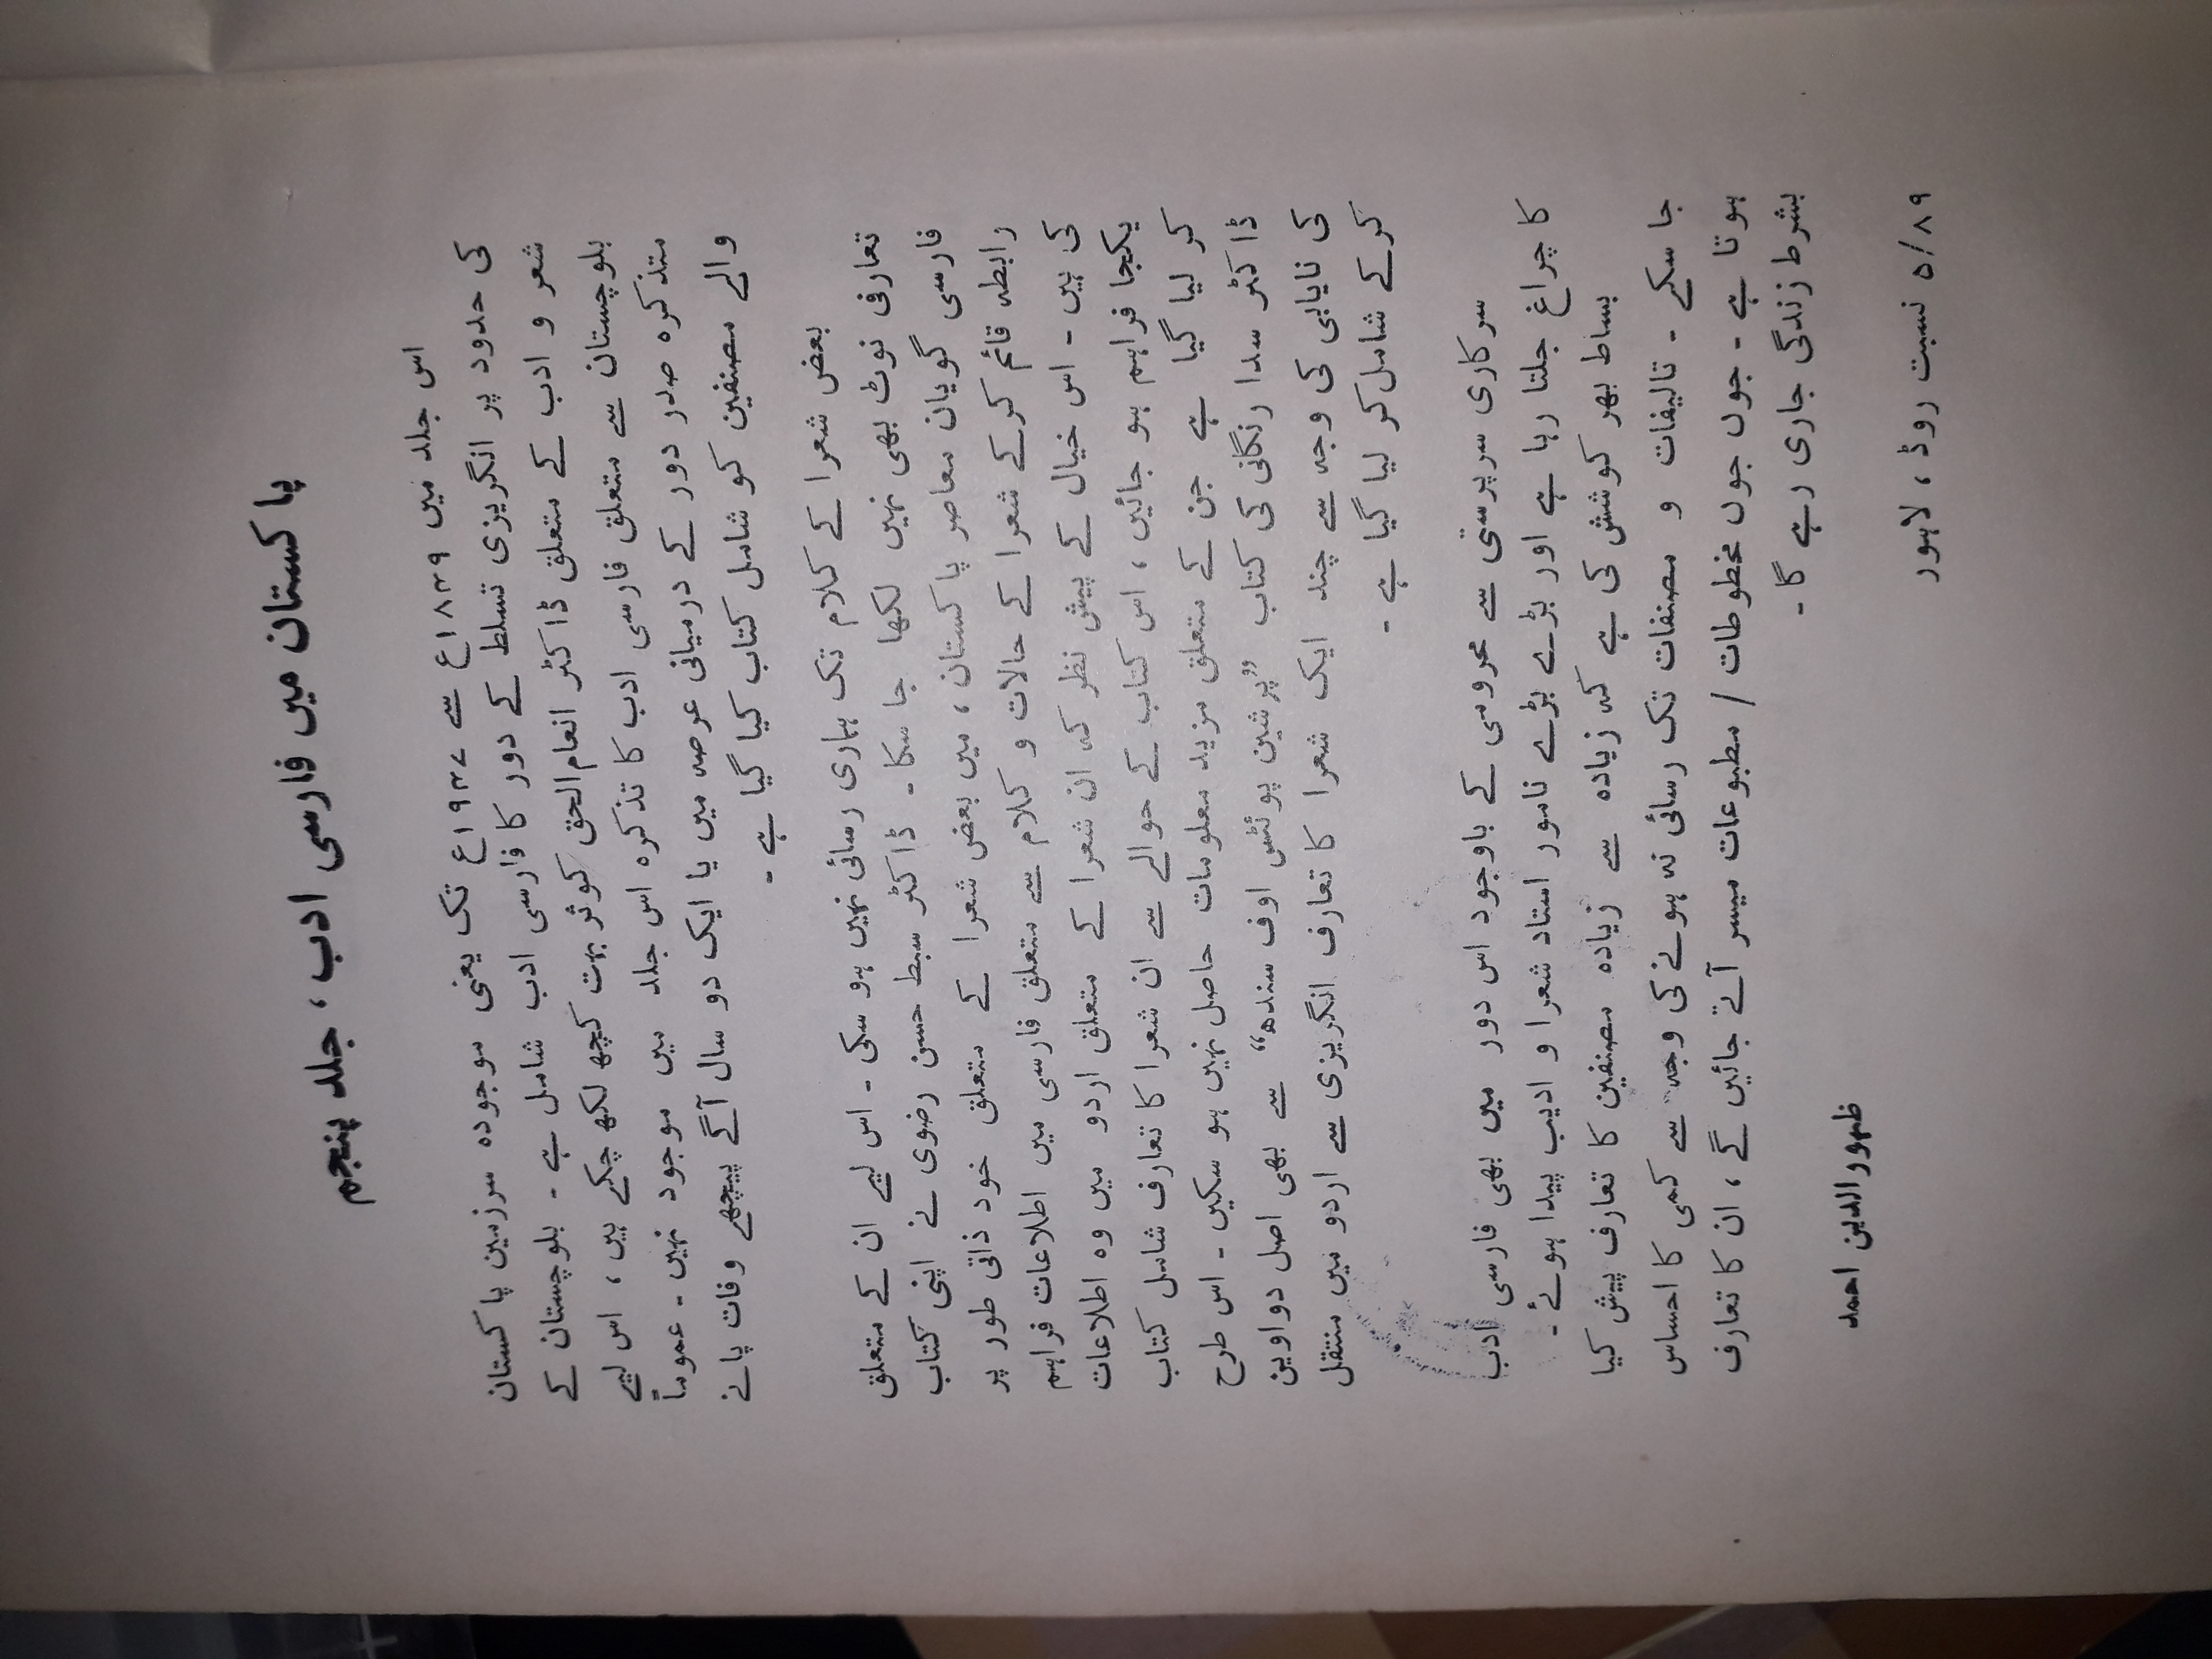 پاکستان میں فارسی ادب ، جلد پنجم
اس جلد میں ۱۸۳۹ع سے ۱۹۴۷ع تک یعنی موجودہ سرزمین پاکستان
کی حدود پر انگریزی تسلط کے دور کا فارسی ادب شامل ہے ۔ بلوچستان کے
شعر و ادب کے متعلق ڈاکٹر انعام الحق کوثر بہت کچھ لکھ چکے ہیں ، اس لیے
بلوچستان سے متعلق فارسی ادب کا تذکرہ اس جلد میں موجود نہیں ۔ عموماً
متذکرہ صدر دور کے درمیانی عرصہ میں یا ایک دو سال آگے پیچھے وفات پانے
والے مصنفین کو شامل کتاب کیا گیا ہے ۔
بعض شعرا کے کلام تک ہماری رسائی نہیں ہو سکی ۔ اس لیے ان کے متعلق
تعارفی نوٹ بھی نہیں لکھا جا سکا ۔ ڈاکٹر سبط حسن رضوی نے اپنی کتاب
فارسی گویان معاصر پاکستان ، میں بعض شعرا کے متعلق خود ذاتی طور پر
رابطہ قائم کر کے شعرا کے حالات و کلام سے متعلق فارسی میں اطلاعات فراہم
کی ہیں ۔ اس خیال کے پیش نظر کہ ان شعرا کے متعلق اردو میں وہ اطلاعات
یکجا فراہم ہو جائیں ، اس کتاب کے حوالے سے ان شعرا کا تعارف شامل کتاب
کر لیا گیا ہے جن کے متعلق مزید معلومات حاصل نہیں ہو سکیں ۔ اس طرح
ڈاکٹر سدا رنگانی کی کتاب ”پرشین پوئٹس اوف سندھ“ سے بھی اصل دواوین
کی نایابی کی وجہ سے چند ایک شعرا کا تعارف انگریزی سے اردو میں منتقل
کر کے شامل کر لیا گیا ہے ۔
سرکاری سرپرستی سے محرومی کے باوجود اس دور میں بھی فارسی ادب
کا چراغ جلتا رہا ہے اور بڑے بڑے نامور استاد شعرا و ادیب پیدا ہوئے ۔
بساط بھر کوشش کی ہے کہ زیادہ سے زیادہ مصنفین کا تعارف پیش کیا
جا سکے ۔ تالیفات و مصنفات تک رسائی نہ ہونے کی وجہ سے کمی کا احساس
ہوتا ہے ۔ جوں جوں مخطوطات / مطبوعات میسر آتے جائیں گے ، ان کا تعارف
بشرط زندگی جاری رہے گا ۔
ظہور الدین احمد
۵/۸۹ نسبت روڈ ، لاہور